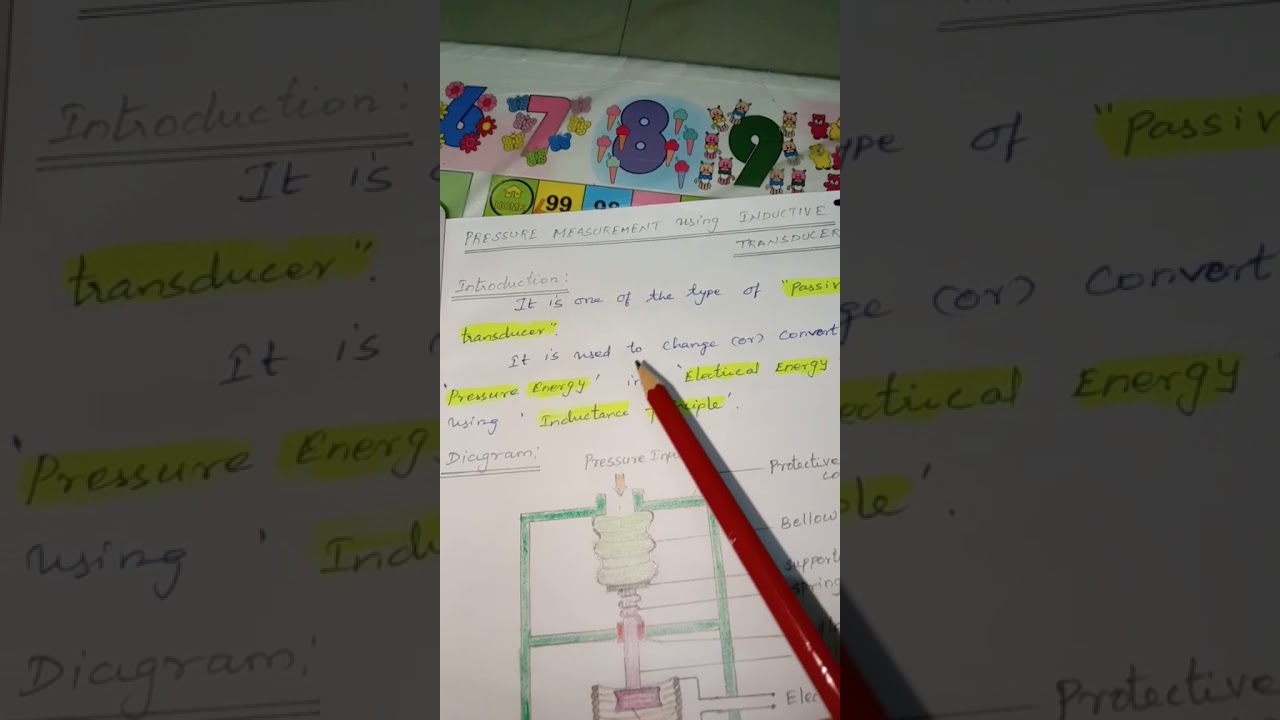 6 7 8 9
HOME 99 98
PRESSURE MEASUREMENT using INDUCTIVE
TRANSDUCER
Introduction:
It is one of the type of "Passiv
transducer".
It is used to change (or) convert
'Pressure Energy' in 'Electiucal Energy
using 'Inductance principle'.
Diagram:
Pressure Inpu
Protective
co
Bellow
support
spring
Elec